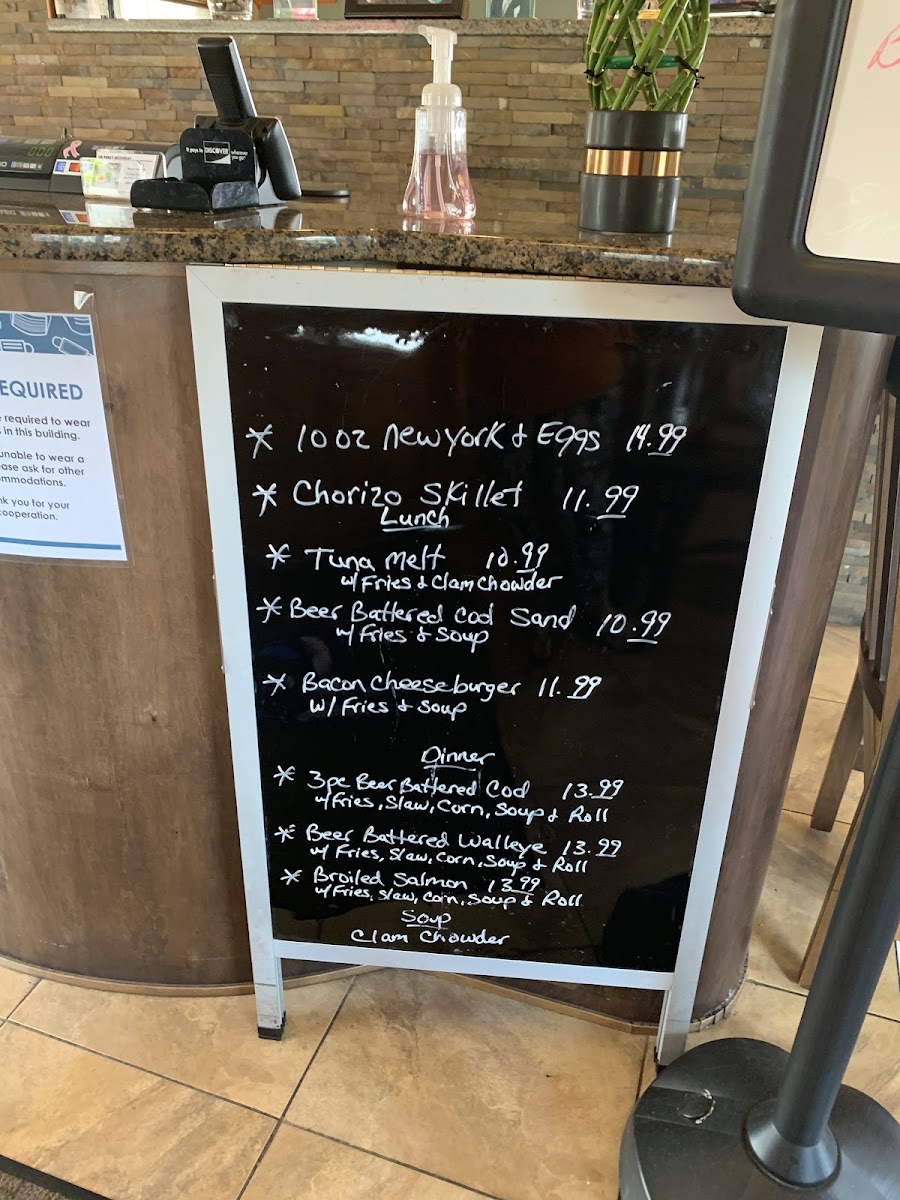 It pays to DISCOVER wherever you go
EQUIRED
required to wear
in this building.
unable to wear a
ase ask for other
mmodations.
k you for your
cooperation.
* 10oz New York & Eggs 14.99
* Chorizo Skillet 11.99
Lunch
* Tuna Melt 10.99
w/ Fries & Clam Chowder
* Beer Battered Cod Sand 10.99
w/ Fries & Soup
* Bacon Cheeseburger 11.99
w/ Fries & Soup
Dinner
* 3pc Beer Battered Cod 13.99
w/ Fries, Slaw, Corn, Soup & Roll
* Beer Battered Walleye 13.99
w/ Fries, Slaw, Corn, Soup & Roll
* Broiled Salmon 13.99
w/ Fries, Slaw, Corn, Soup & Roll
Soup
Clam Chowder